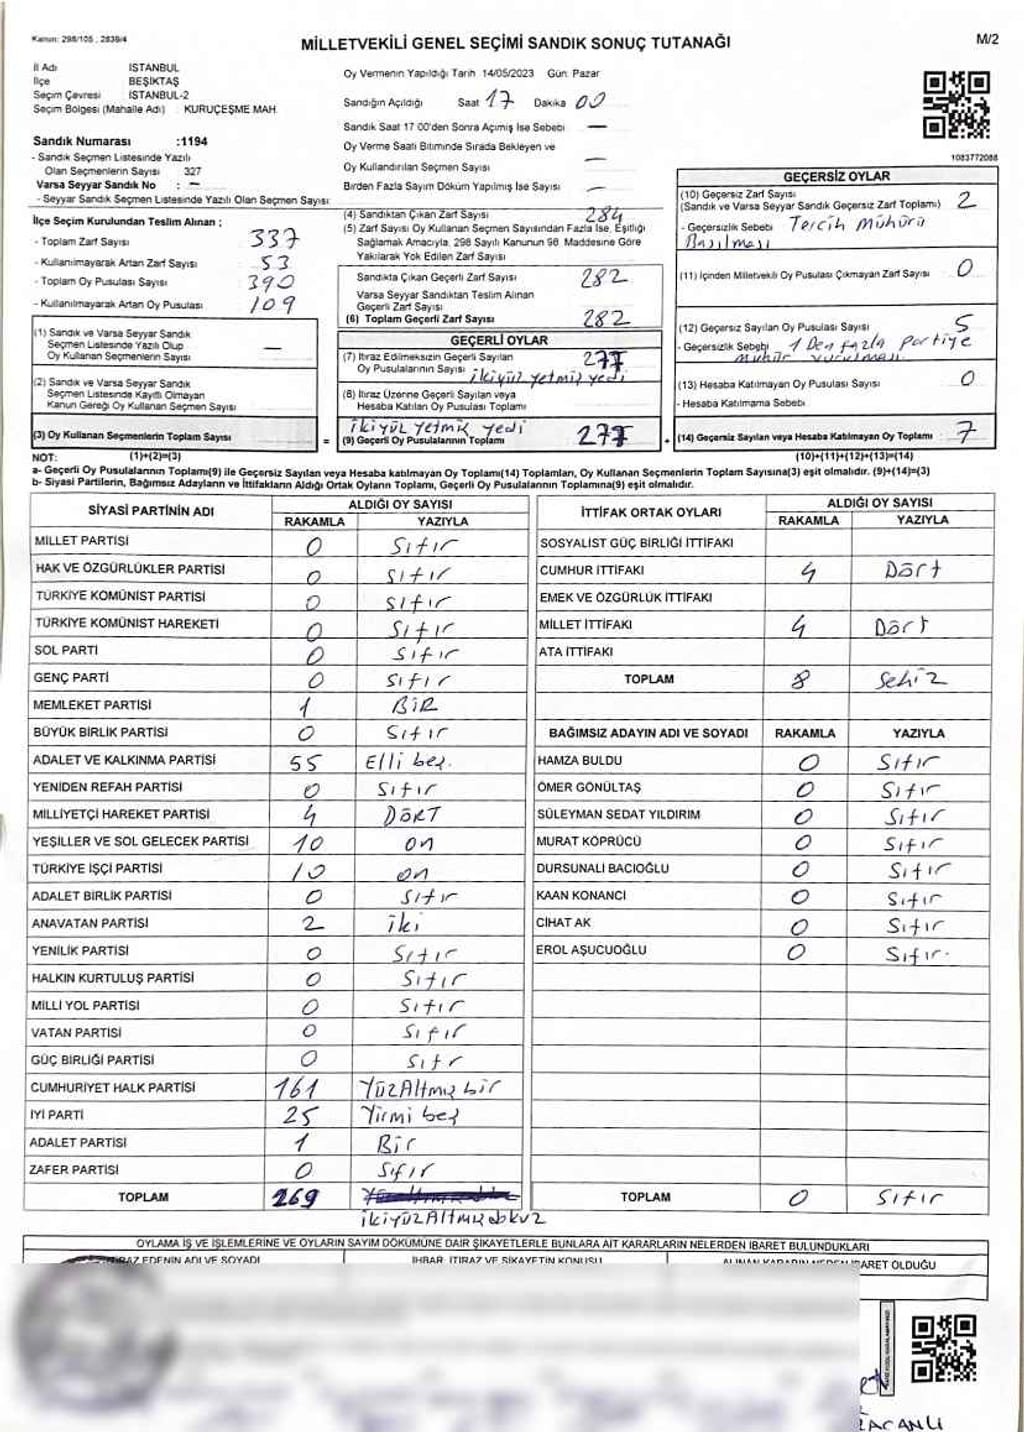 Kanun: 298/105 ; 2839/4
MİLLETVEKİLİ GENEL SEÇİMİ SANDIK SONUÇ TUTANAĞI
M/2
İl Adı İSTANBUL
İlçe BEŞİKTAŞ
Seçim Çevresi İSTANBUL-2
Seçim Bölgesi (Mahalle Adı) KURUÇEŞME MAH.
Oy Vermenin Yapıldığı Tarih 14/05/2023 Gün: Pazar
Sandığın Açıldığı Saat 17 Dakika 00
Sandık Saat 17 00'den Sonra Açımış İse Sebebi —
Oy Verme Saati Bitiminde Sırada Bekleyen ve
Oy Kullandırılan Seçmen Sayısı —
Birden Fazla Sayım Döküm Yapılmış İse Sayısı —
1083772088
Sandık Numarası :1194
- Sandık Seçmen Listesinde Yazılı
Olan Seçmenlerin Sayısı 327
Varsa Seyyar Sandık No : —
- Seyyar Sandık Seçmen Listesinde Yazılı Olan Seçmen Sayısı:
İlçe Seçim Kurulundan Teslim Alınan ;
- Toplam Zarf Sayısı 337
- Kullanılmayarak Artan Zarf Sayısı 53
- Toplam Oy Pusulası Sayısı 390
- Kullanılmayarak Artan Oy Pusulası 109
(1) Sandık ve Varsa Seyyar Sandık
Seçmen Listesinde Yazılı Olup
Oy Kullanan Seçmenlerin Sayısı —
(2) Sandık ve Varsa Seyyar Sandık
Seçmen Listesinde Kayıtlı Olmayan
Kanun Gereği Oy Kullanan Seçmen Sayısı
(3) Oy Kullanan Seçmenlerin Toplam Sayısı
(4) Sandıktan Çıkan Zarf Sayısı 284
(5) Zarf Sayısı Oy Kullanan Seçmen Sayısından Fazla İse, Eşitliği
Sağlamak Amacıyla, 298 Sayılı Kanunun 98. Maddesine Göre
Yakılarak Yok Edilen Zarf Sayısı
Sandıkta Çıkan Geçerli Zarf Sayısı 282
Varsa Seyyar Sandıktan Teslim Alınan
Geçerli Zarf Sayısı
(6) Toplam Geçerli Zarf Sayısı 282
GEÇERLİ OYLAR
(7) İtiraz Edilmeksizin Geçerli Sayılan
Oy Pusulalarının Sayısı 277
ikiyüz yetmiş yedi
(8) İtiraz Üzerine Geçerli Sayılan veya
Hesaba Katılan Oy Pusulası Toplamı
ikiyüz yetmiş yedi
= (9) Geçerli Oy Pusulalarının Toplamı 277 +
GEÇERSİZ OYLAR
(10) Geçersiz Zarf Sayısı
(Sandık ve Varsa Seyyar Sandık Geçersiz Zarf Toplamı) 2
- Geçersizlik Sebebi Tercih Mühürü
Basılması
(11) İçinden Milletvekili Oy Pusulası Çıkmayan Zarf Sayısı 0
(12) Geçersiz Sayılan Oy Pusulası Sayısı 5
- Geçersizlik Sebebi 1 Den fazla partiye
mühür vurulması
(13) Hesaba Katılmayan Oy Pusulası Sayısı 0
- Hesaba Katılmama Sebebi
(14) Geçersiz Sayılan veya Hesaba Katılmayan Oy Toplamı 7
NOT: (1)+(2)=(3) (10)+(11)+(12)+(13)=(14)
a- Geçerli Oy Pusulalarının Toplamı(9) ile Geçersiz Sayılan veya Hesaba katılmayan Oy Toplamı(14) Toplamları, Oy Kullanan Seçmenlerin Toplam Sayısına(3) eşit olmalıdır. (9)+(14)=(3)
b- Siyasi Partilerin, Bağımsız Adayların ve İttifakların Aldığı Ortak Oyların Toplamı, Geçerli Oy Pusulalarının Toplamına(9) eşit olmalıdır.
SİYASİ PARTİNİN ADI ALDIĞI OY SAYISI
RAKAMLA YAZIYLA
MİLLET PARTİSİ 0 Sıfır
HAK VE ÖZGÜRLÜKLER PARTİSİ 0 Sıfır
TÜRKİYE KOMÜNİST PARTİSİ 0 Sıfır
TÜRKİYE KOMÜNİST HAREKETİ 0 Sıfır
SOL PARTİ 0 Sıfır
GENÇ PARTİ 0 Sıfır
MEMLEKET PARTİSİ 1 BİR
BÜYÜK BİRLİK PARTİSİ 0 Sıfır
ADALET VE KALKINMA PARTİSİ 55 Elli beş.
YENİDEN REFAH PARTİSİ 0 Sıfır
MİLLİYETÇİ HAREKET PARTİSİ 4 DÖRT
YEŞİLLER VE SOL GELECEK PARTİSİ 10 on
TÜRKİYE İŞÇİ PARTİSİ 10 on
ADALET BİRLİK PARTİSİ 0 Sıfır
ANAVATAN PARTİSİ 2 iki
YENİLİK PARTİSİ 0 Sıfır
HALKIN KURTULUŞ PARTİSİ 0 Sıfır
MİLLİ YOL PARTİSİ 0 Sıfır
VATAN PARTİSİ 0 Sıfır
GÜÇ BİRLİĞİ PARTİSİ 0 Sıfr
CUMHURİYET HALK PARTİSİ 161 YüzAltmış bir
İYİ PARTİ 25 Yirmi beş
ADALET PARTİSİ 1 Bir
ZAFER PARTİSİ 0 Sıfır
TOPLAM 269
ikiyüzAltmışdokuz
İTTİFAK ORTAK OYLARI ALDIĞI OY SAYISI
RAKAMLA YAZIYLA
SOSYALİST GÜÇ BİRLİĞİ İTTİFAKI
CUMHUR İTTİFAKI 4 Dört
EMEK VE ÖZGÜRLÜK İTTİFAKI
MİLLET İTTİFAKI 4 Dört
ATA İTTİFAKI
TOPLAM 8 Sekiz
BAĞIMSIZ ADAYIN ADI VE SOYADI RAKAMLA YAZIYLA
HAMZA BULDU 0 Sıfır
ÖMER GÖNÜLTAŞ 0 Sıfır
SÜLEYMAN SEDAT YILDIRIM 0 Sıfır
MURAT KÖPRÜCÜ 0 Sıfır
DURSUNALİ BACIOĞLU 0 Sıfır
KAAN KONANCİ 0 Sıfır
CİHAT AK 0 Sıfır
EROL AŞUCUOĞLU 0 Sıfır.
TOPLAM 0 Sıfır
OYLAMA İŞ VE İŞLEMLERİNE VE OYLARIN SAYIM DÖKÜMÜNE DAİR ŞİKAYETLERLE BUNLARA AİT KARARLARIN NELERDEN İBARET BULUNDUKLARI
EDENİN ADI VE SOYADI İHBAR, İTİRAZ VE ŞİKAYETİN KONUSU ALINAN KARARIN NEDEN İBARET OLDUĞU